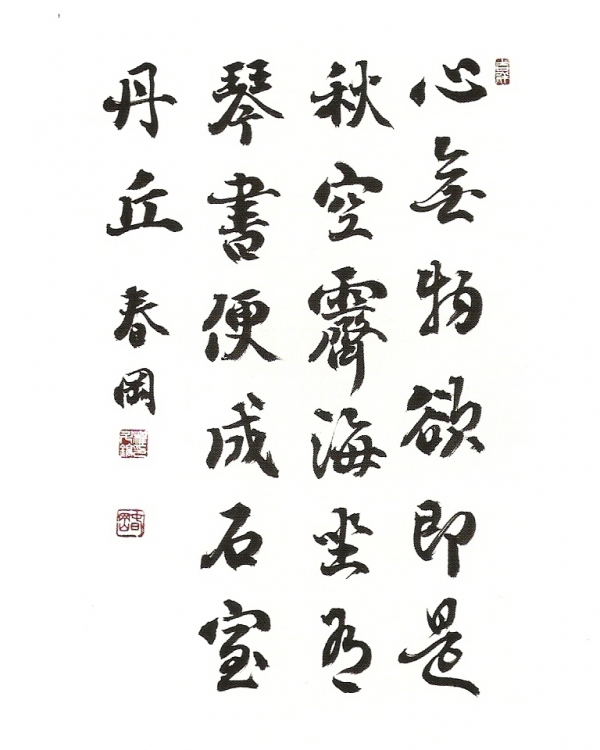 心無物欲即是
秋空霽海坐有
琴書便成石室
丹丘 春岡